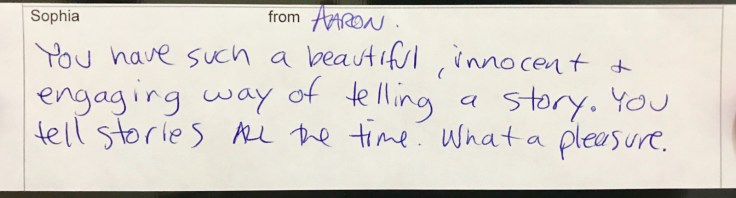 Sophia from AARON.
You have such a beautiful, innocent &
engaging way of telling a story. You
tell stories ALL the time. What a pleasure.